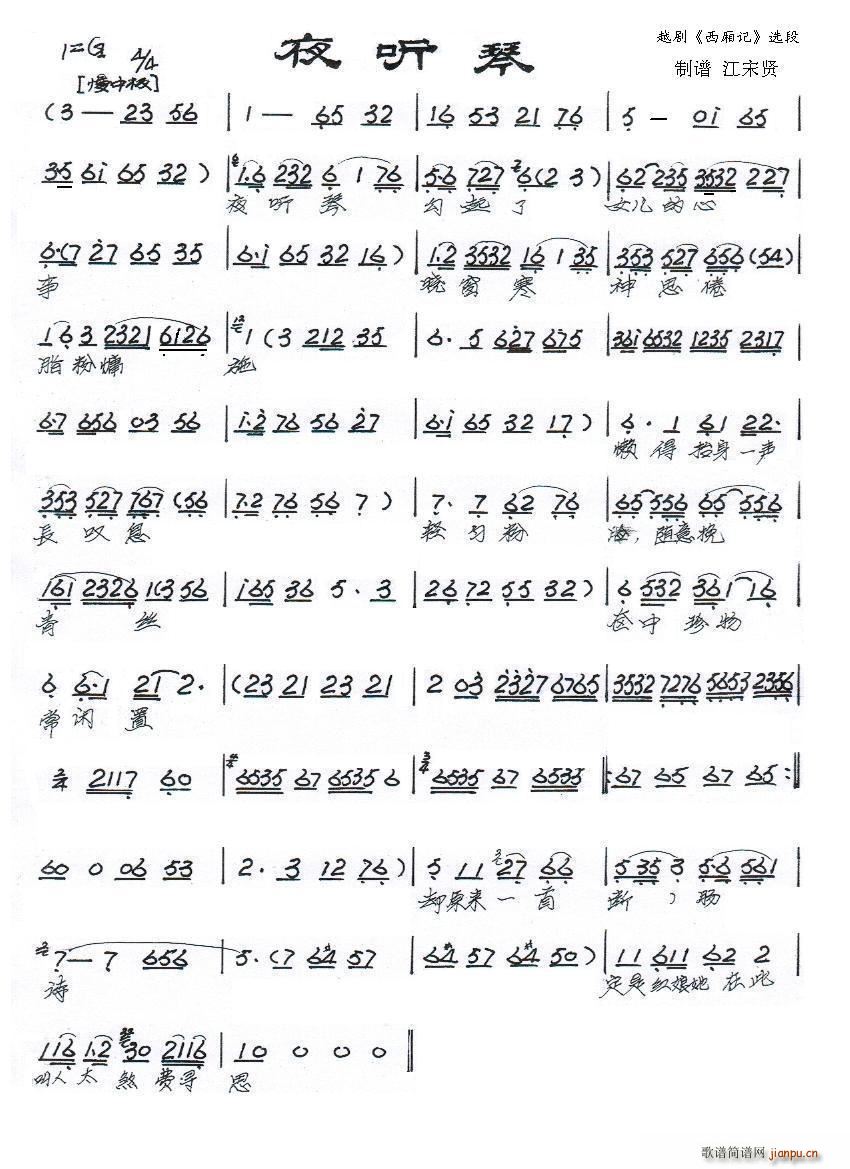 夜听琴
越剧《西厢记》选段
制谱 江宋贤
1=G 4/4
[慢中板]
(3 — 23 56 | 1 — 65 32 | 16 53 21 76 | 5 — 0i 65 |
35 6i 65 32 ) | 1·6 232 6 1 76 | 5·6 727 6(2 3) | 62 235 3532 227 |
夜听琴 勾起了 女儿的心
6·(7 27 65 35 | 6·i 65 32 16 ) | 1·2 3532 16 1 35 | 353 527 656 (54) |
事 晓窗寒 神思倦
1 6 3 2321 6126 | 1 (3 212 35 | 6· 5 627 675 | 36i 6532 1235 2317 |
脂粉慵 施
6·7 656 03 56 | i·2 76 56 27 | 6·i 65 32 17 ) | 6· 1 61 22· |
懒得抬身一声
353 527 767 (56 | 7·2 76 56 7 ) | 7· 7 62 76 | 65 556 65 556 |
長叹息 轻匀粉 随意挽
161 2326 1(3 56 | i65 36 5· 3 | 26 72 55 32 ) | 6 532 361 116 |
青丝 奁中珍物
6 6·1 21 2· | (23 21 23 21 | 2 03 2327 6765 | 3532 7276 5653 2356 |
常闲置
2/4 2117 60 | 6535 67 6535 6 | 3/4 6535 67 6535 |: 67 65 67 65 :||
60 0 06 53 | 2· 3 12 76 ) | 5 11 27 66 | 5 35 3 5·6 561 |
却原来一首 断肠
7 — 7 656 | 5·(7 6#4 57 | 6#4 57 6#4 50 ) | 11 611 62 2 |
诗 定是红娘她在此
116 1·2 30 2116 | 10 0 0 0 ||
叫人太煞费寻 思
歌谱简谱网 jianpu.cn